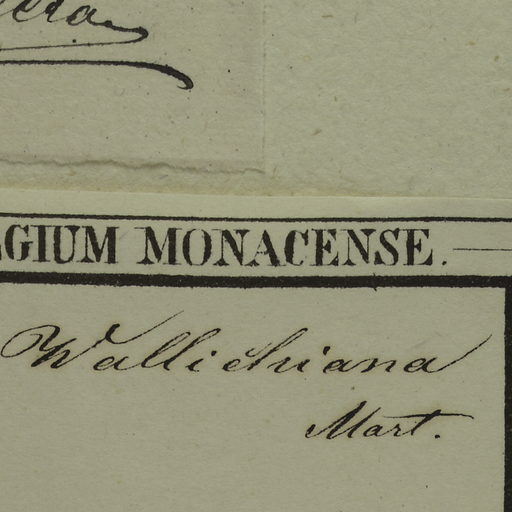 GIUM MONACENSE.
Wallichiana
Mart.